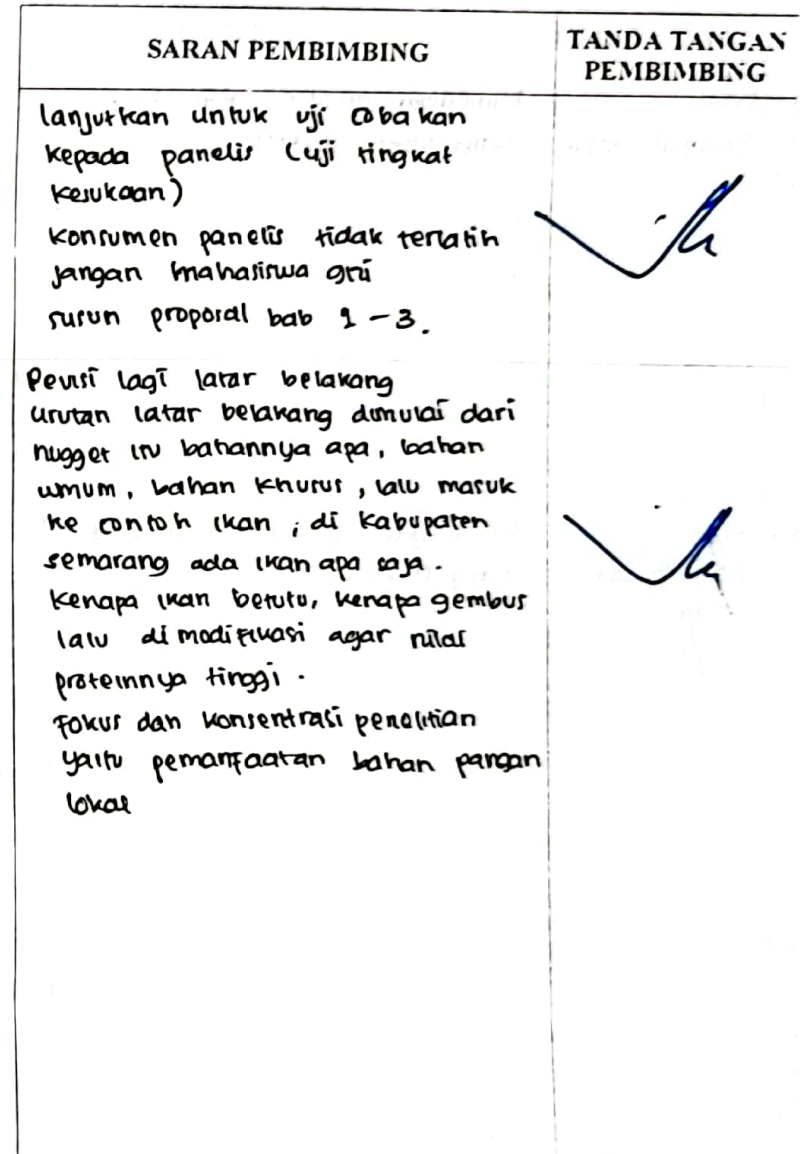 SARAN PEMBIMBING
TANDA TANGAN
PEMBIMBING
lanjutkan untuk uji coba kan
kepada panelis (uji tingkat
kesukaan)
konsumen panelis tidak terlatih
jangan mahasiswa gizi
susun proposal bab 1 - 3.
Revisi lagi latar belakang
urutan latar belakang dimulai dari
nugget itu bahannya apa, bahan
umum, bahan khusus, lalu masuk
ke contoh ikan, di kabupaten
semarang ada ikan apa saja.
kenapa ikan betutu, kenapa gembus
lalu di modifikasi agar nilai
proteinnya tinggi.
Fokus dan konsentrasi penelitian
yaitu pemanfaatan bahan pangan
lokal